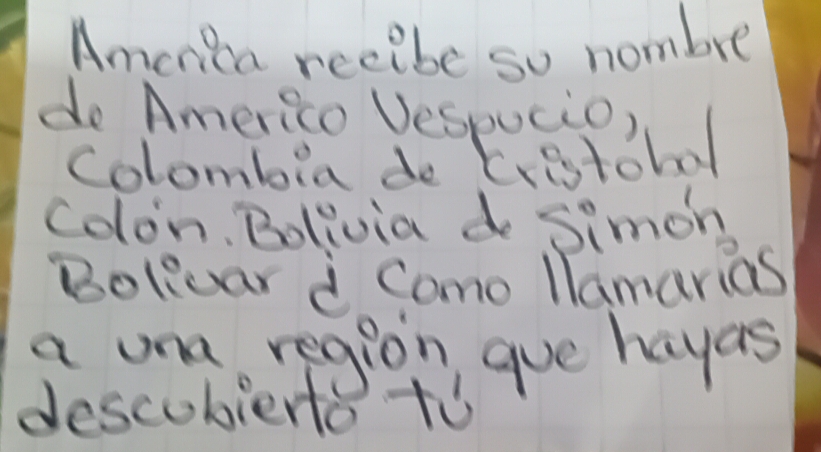 America recibe su nombre
de Americo Vespucio,
Colombia de Cristobal
Colón. Bolivia de Simón
Bolivar ¿ Como llamarias
a una región que hayas
descubierto tú